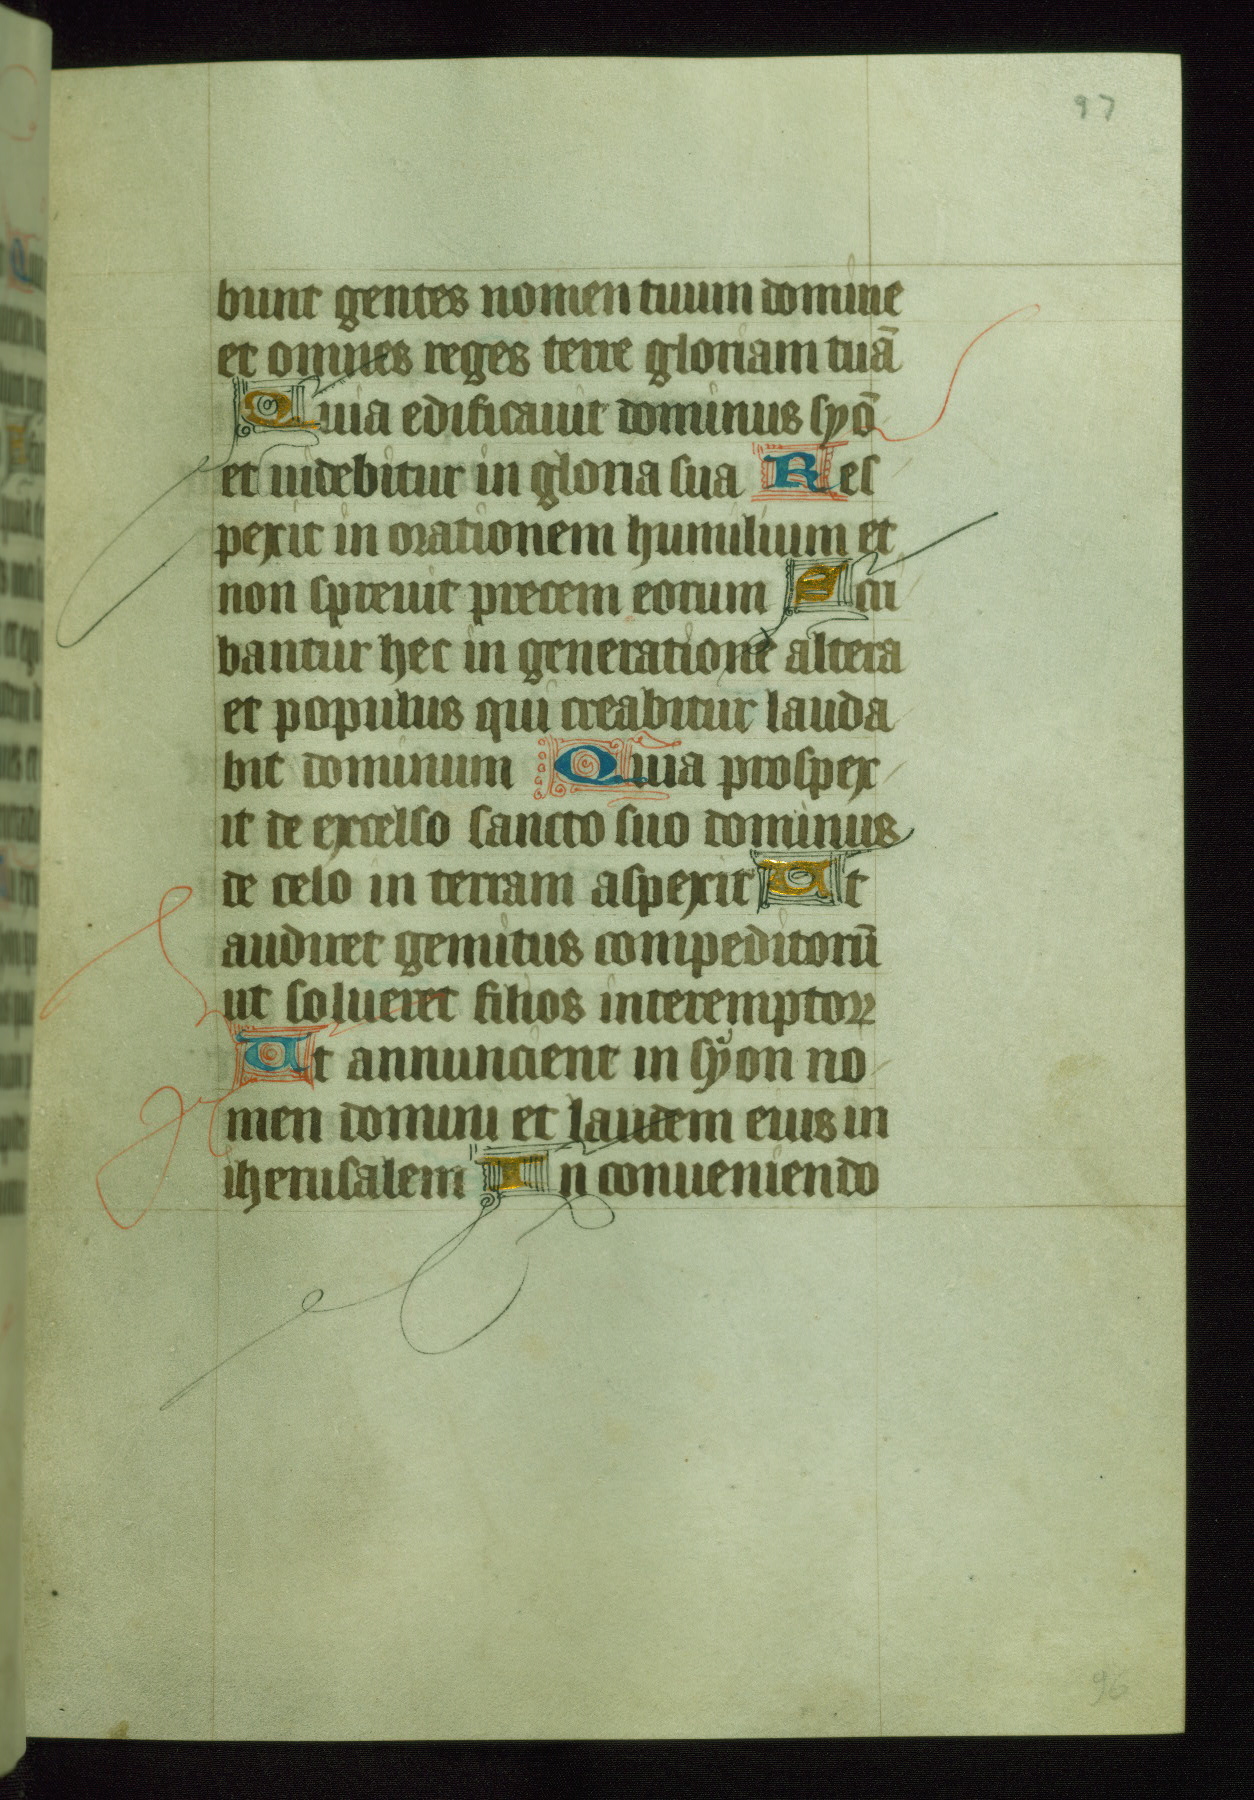 97
bunt gentes nomen tuum domine
et omnes reges terre gloriam tuā
Quia edificauit dominus syō
et uidebitur in gloria sua Res
pexit in orationem humilium et
non spreuit precem eorum Scri
bantur hec in generatione altera
et populus qui creabitur lauda
bit dominum Quia prospex
it de excelso sancto suo dominus
de celo in terram aspexit Ut
audiret gemitus compeditorū
ut solueret filios interemptoꝝ
Ut annuncient in syon no
men domini et laudem eius in
iherusalem In conueniendo
96